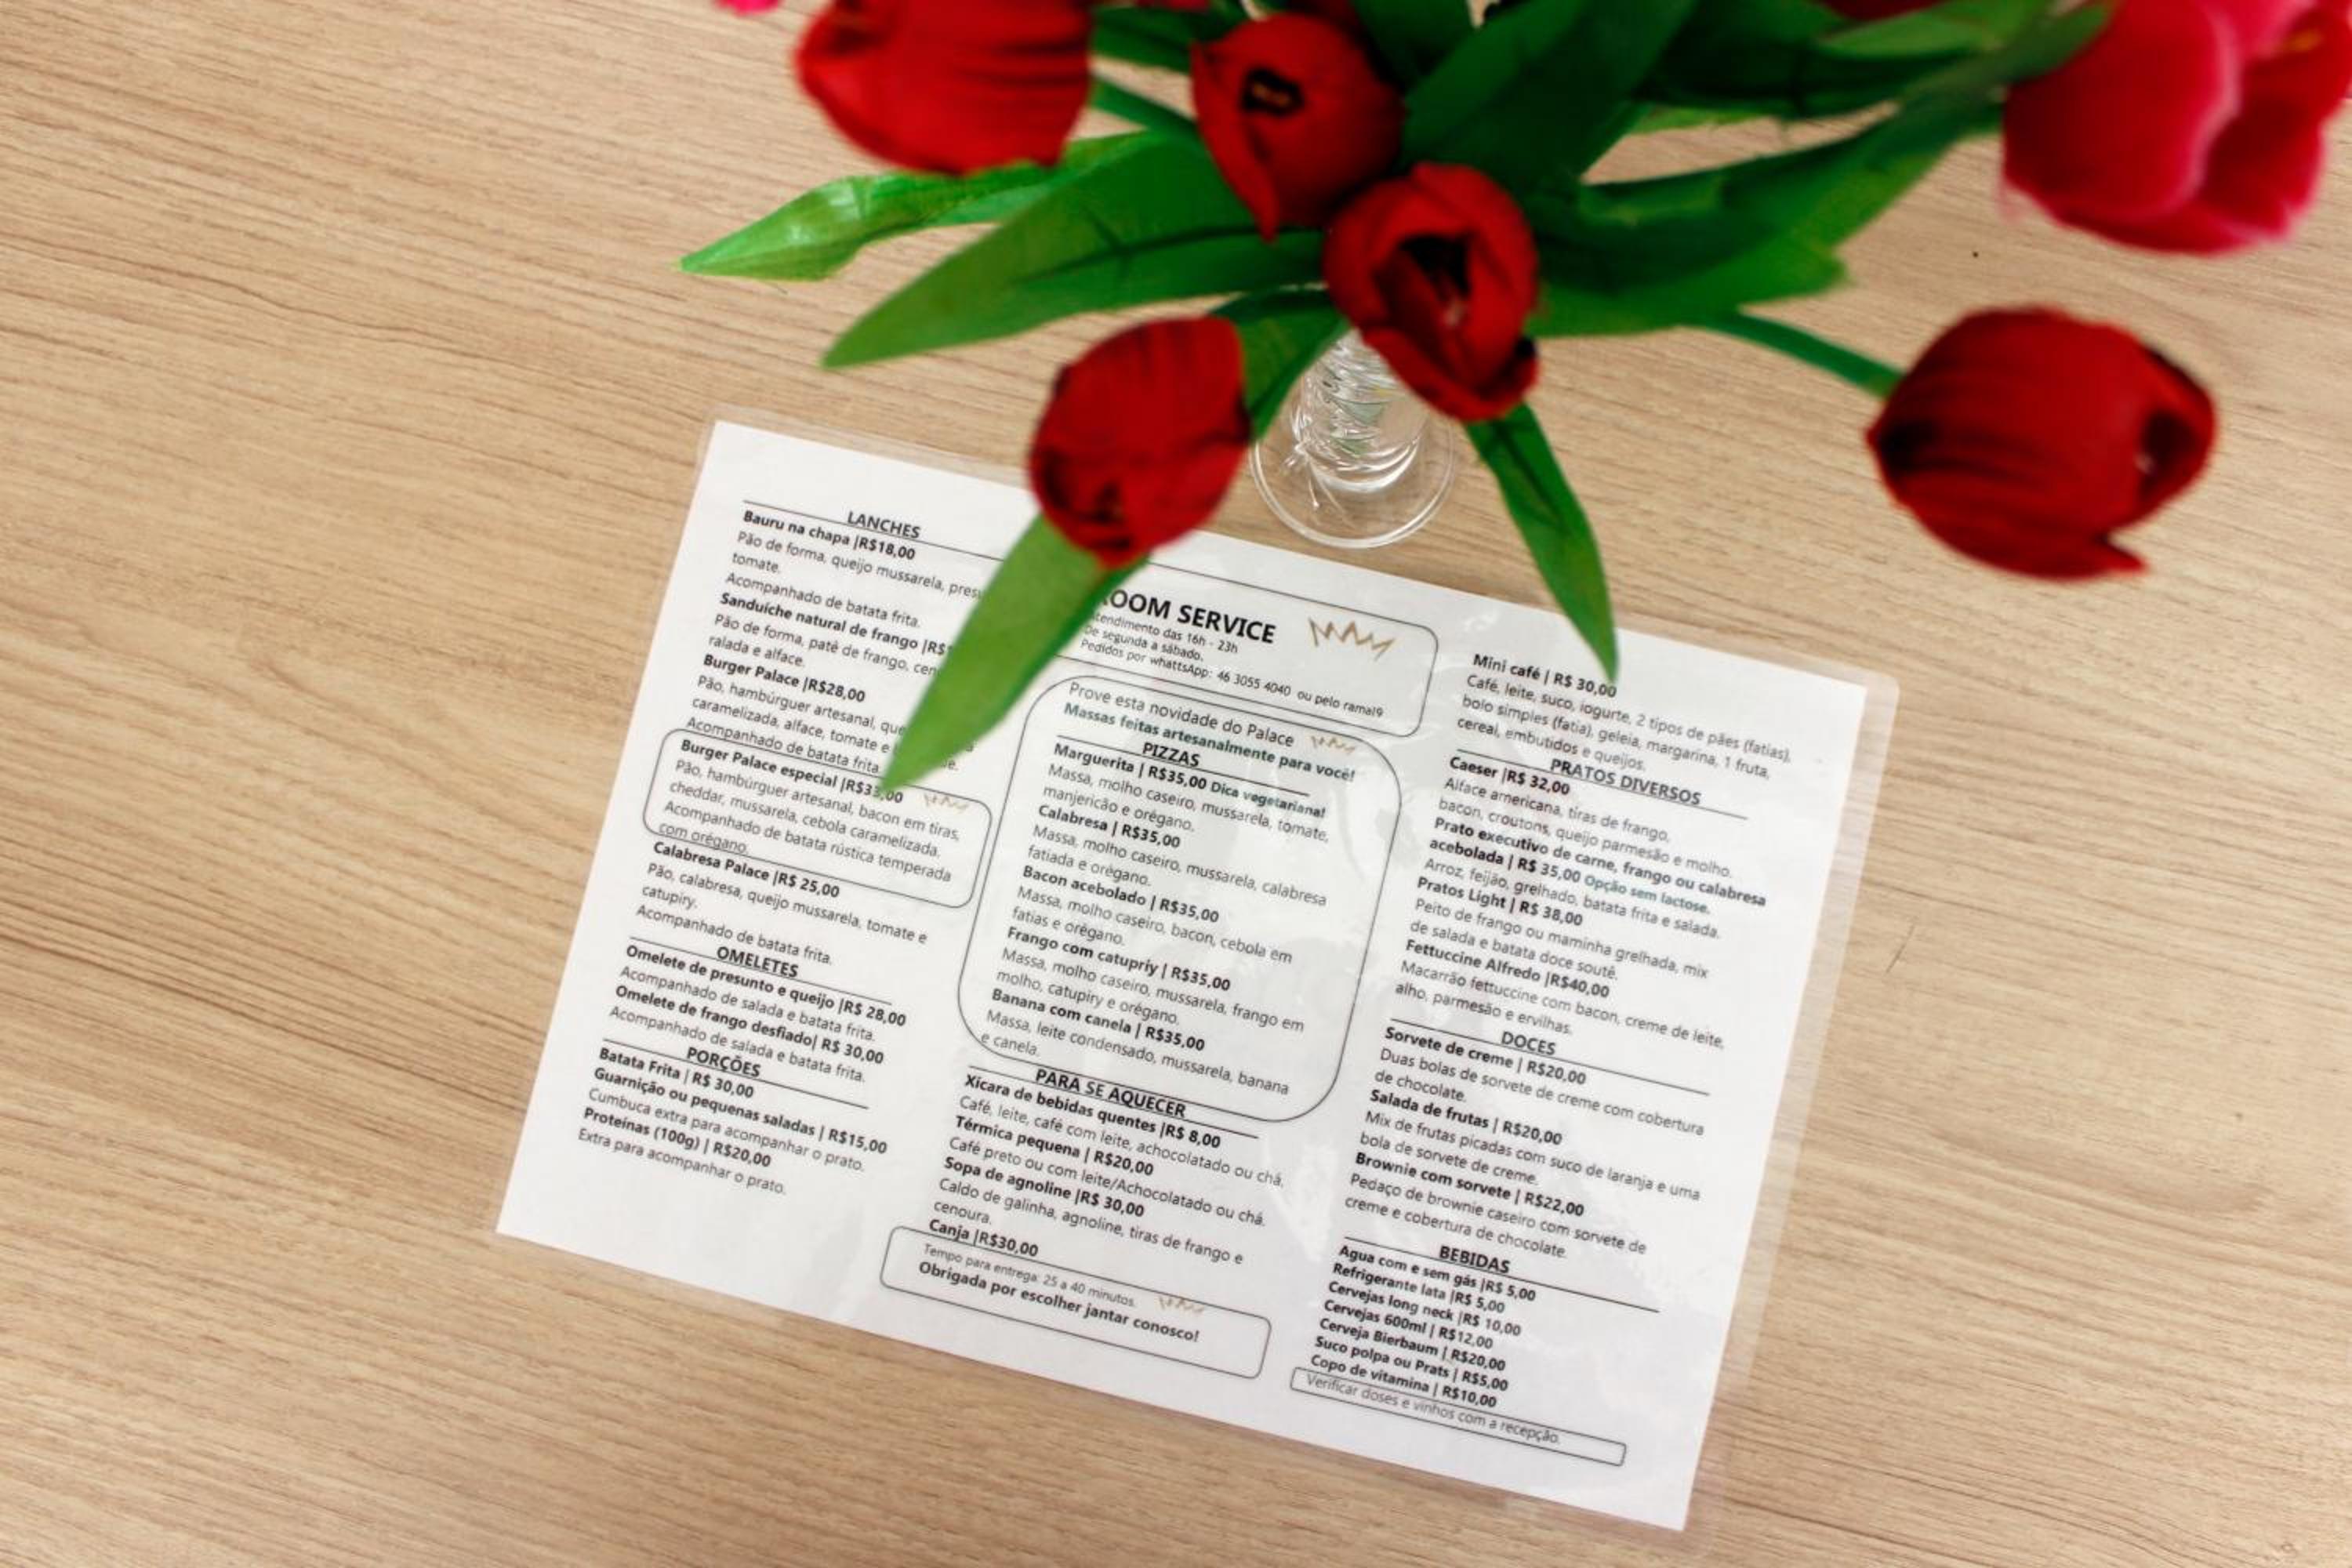 LANCHES
Bauru na chapa |R$18,00
Pão de forma, queijo mussarela,
tomate.
Acompanhado de batata frita.
Sanduíche natural de frango |R$
Pão de forma, patê de frango,
ralada e alface.
Burger Palace |R$28,00
Pão, hambúrguer artesanal,
caramelizada, alface, tomate e
Acompanhado de batata frita.
Burger Palace especial |R$33,00
Pão, hambúrguer artesanal, bacon em tiras,
cheddar, mussarela, cebola caramelizada.
Acompanhado de batata rústica temperada
com orégano.
Calabresa Palace |R$ 25,00
Pão, calabresa, queijo mussarela, tomate e
catupiry.
Acompanhado de batata frita.
OMELETES
Omelete de presunto e queijo |R$ 28,00
Acompanhado de salada e batata frita.
Omelete de frango desfiado| R$ 30,00
Acompanhado de salada e batata frita.
PORÇÕES
Batata Frita | R$ 30,00
Guarnição ou pequenas saladas | R$15,00
Cumbuca extra para acompanhar o prato.
Proteínas (100g) | R$20,00
Extra para acompanhar o prato.
ROOM SERVICE
Atendimento das 16h - 23h
De segunda a sábado.
Pedidos por whattsApp: 46 3055 4040 ou pelo ramal9
Prove esta novidade do Palace
Massas feitas artesanalmente para você!
PIZZAS
Marguerita | R$35,00 Dica vegetariana!
Massa, molho caseiro, mussarela, tomate,
manjericão e orégano.
Calabresa | R$35,00
Massa, molho caseiro, mussarela, calabresa
fatiada e orégano.
Bacon acebolado | R$35,00
Massa, molho caseiro, bacon, cebola em
fatias e orégano.
Frango com catupriy | R$35,00
Massa, molho caseiro, mussarela, frango em
molho, catupiry e orégano.
Banana com canela | R$35,00
Massa, leite condensado, mussarela, banana
e canela.
PARA SE AQUECER
Xícara de bebidas quentes |R$ 8,00
Café, leite, café com leite, achocolatado ou chá.
Térmica pequena | R$20,00
Café preto ou com leite/Achocolatado ou chá.
Sopa de agnoline |R$ 30,00
Caldo de galinha, agnoline, tiras de frango e
cenoura.
Canja |R$30,00
Tempo para entrega: 25 a 40 minutos.
Obrigada por escolher jantar conosco!
Mini café | R$ 30,00
Café, leite, suco, iogurte, 2 tipos de pães (fatias),
bolo simples (fatia), geleia, margarina, 1 fruta,
cereal, embutidos e queijos.
PRATOS DIVERSOS
Caeser |R$ 32,00
Alface americana, tiras de frango,
bacon, croutons, queijo parmesão e molho.
Prato executivo de carne, frango ou calabresa
acebolada | R$ 35,00 Opção sem lactose.
Arroz, feijão, grelhado, batata frita e salada.
Pratos Light | R$ 38,00
Peito de frango ou maminha grelhada, mix
de salada e batata doce soutê.
Fettuccine Alfredo |R$40,00
Macarrão fettuccine com bacon, creme de leite,
alho, parmesão e ervilhas.
DOCES
Sorvete de creme | R$20,00
Duas bolas de sorvete de creme com cobertura
de chocolate.
Salada de frutas | R$20,00
Mix de frutas picadas com suco de laranja e uma
bola de sorvete de creme.
Brownie com sorvete | R$22,00
Pedaço de brownie caseiro com sorvete de
creme e cobertura de chocolate.
BEBIDAS
Agua com e sem gás |R$ 5,00
Refrigerante lata |R$ 5,00
Cervejas long neck |R$ 10,00
Cervejas 600ml | R$12,00
Cerveja Bierbaum | R$20,00
Suco polpa ou Prats | R$5,00
Copo de vitamina | R$10,00
Verificar doses e vinhos com a recepção.